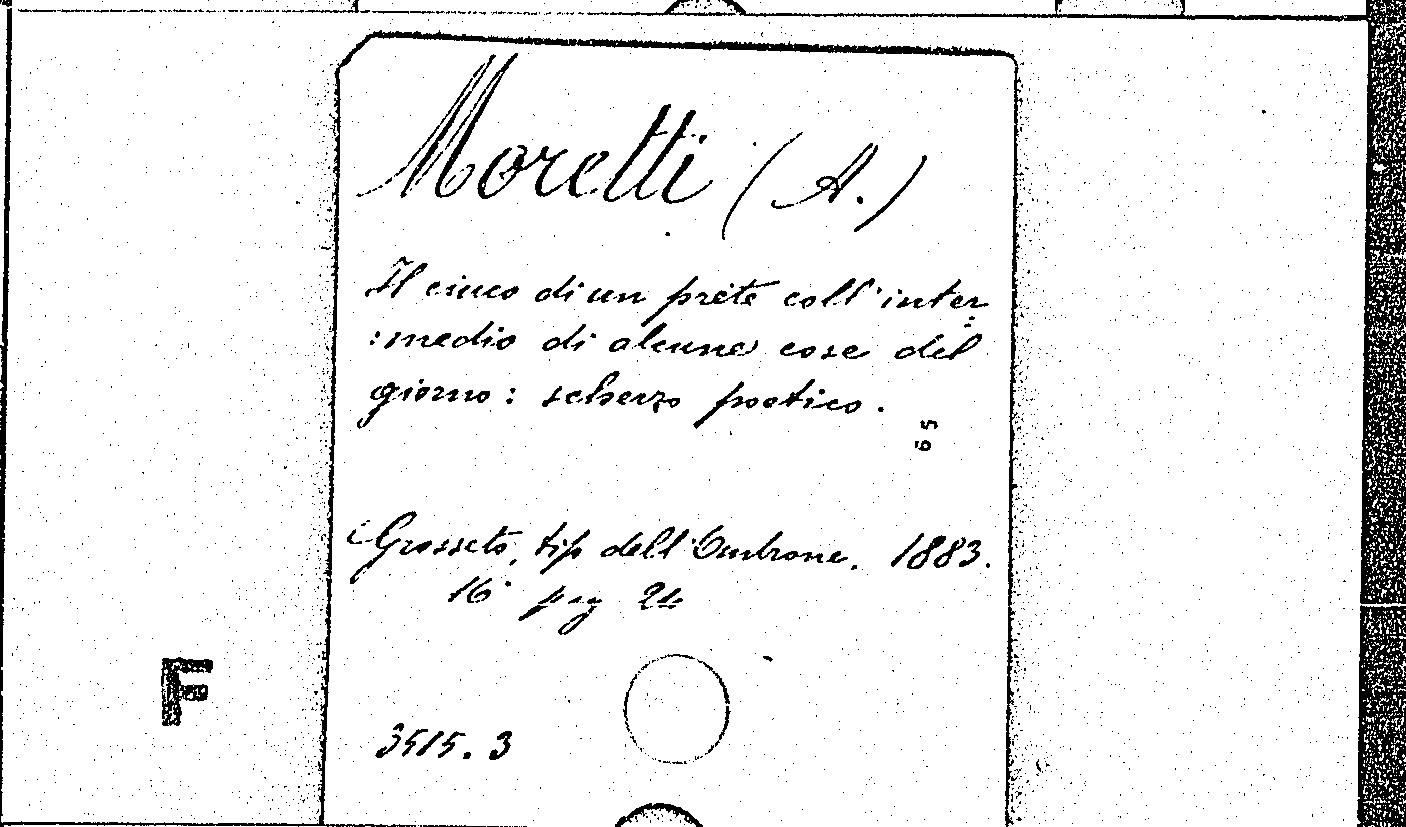 Moretti (A.)
Il ciuco di un prete coll'inter
:medio di alcune cose del
giorno: scherzo poetico.
65
Grosseto, tip dell'Ombrone. 1883.
16° pag 24
F
3515.3